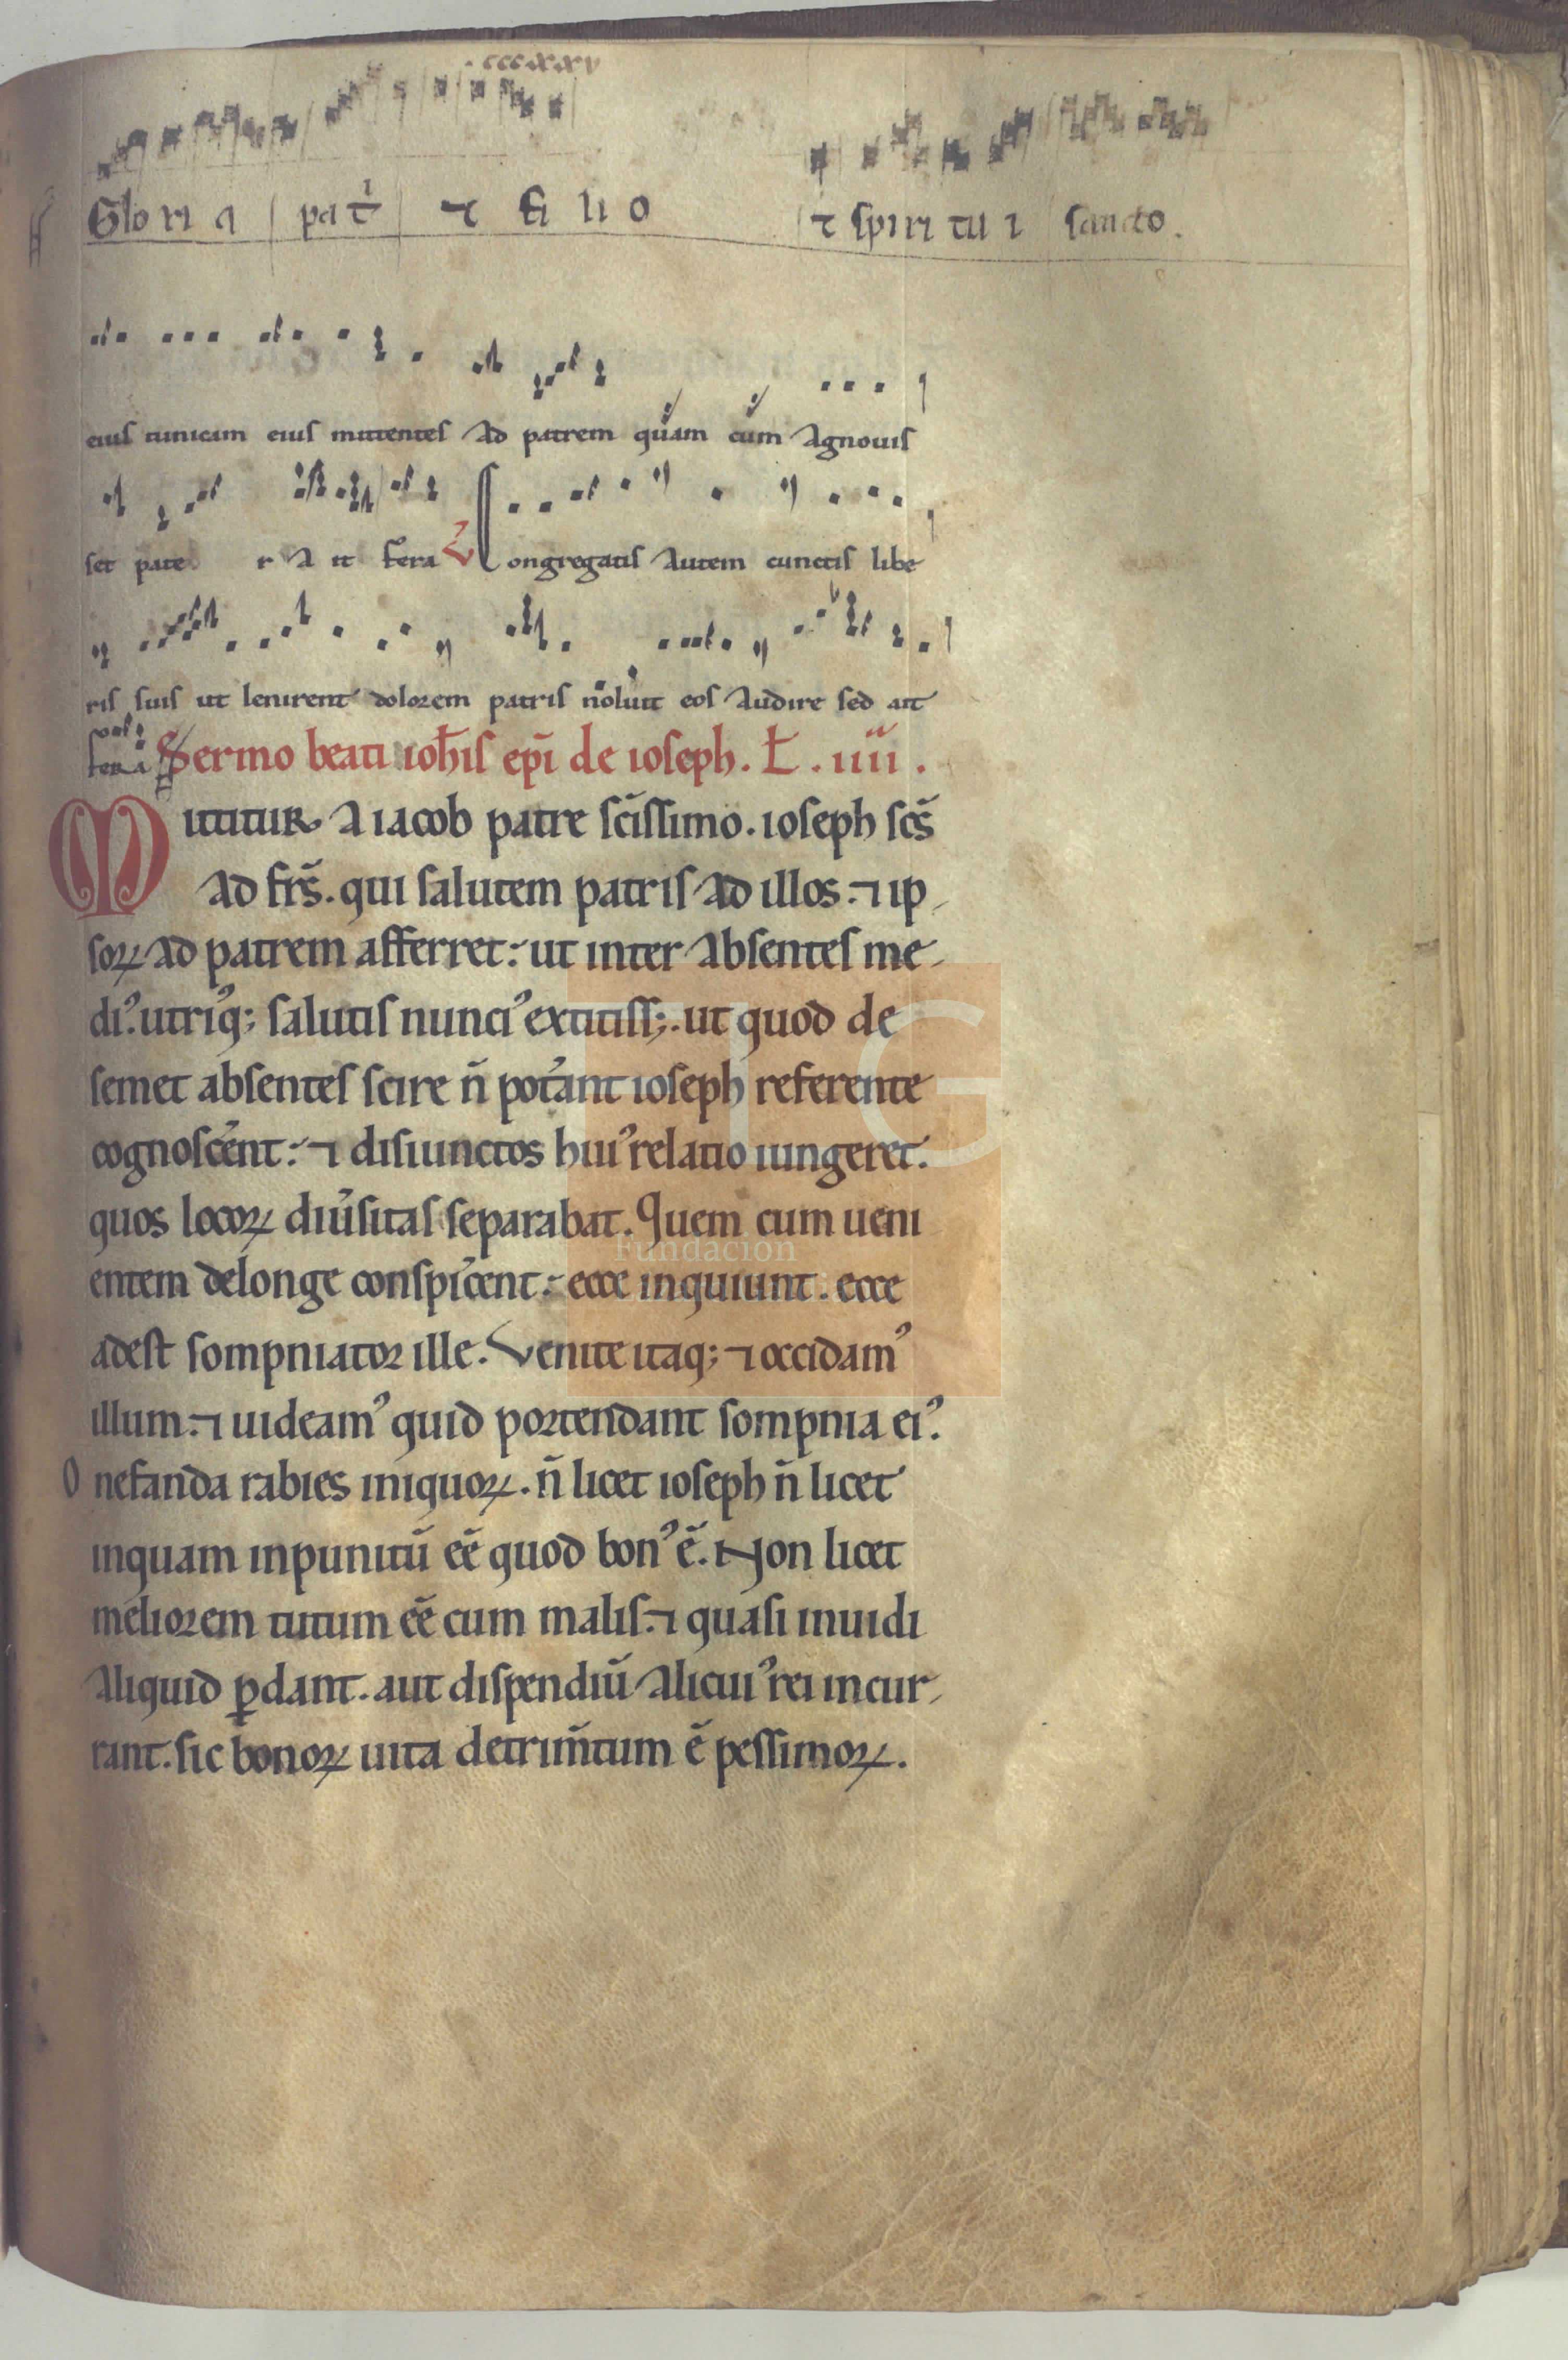 .cccxxxv
Gloria pat̄i ⁊ filio ⁊ spiritui sancto.
eius tunicam eius mittentes ad patrem quam cum agnouis
set pater ait fera ℣ Congregatis autem cunctis libe
ris suis ut lenirent dolorem patris noluit eos audire sed ait
fera Sermo beati ioħis ep̄i de ioseph. Ł. iiii.
Mittitur a iacob patre sc̄issimo. ioseph sc̄s
ad fr̄s. qui salutem patris ad illos. ⁊ ip
soꝝ ad patrem afferret: ut inter absentes me
diꝰ. utriꝰq; salutis nunciꝰ extitiss;. ut quod de
semet absentes scire n̄ pot̾ant ioseph referente
cognosc̾ent: ⁊ disiunctos huiꝰ relatio iungeret.
quos locoꝝ diu̾sitas separabat. Quem cum ueni
entem delonge conspic̾ent: ecce inquiunt. ecce
adest sompniator ille. Venite itaq; ⁊ occidamꝰ
illum. ⁊ uideamꝰ quid portendant sompnia eiꝰ.
O nefanda rabies iniquoꝝ. n̄ licet ioseph n̄ licet
inquam inpunitū eē quod bonꝰ ē. Non licet
meliorem tutum eē cum malis. ⁊ quasi inuidi
aliquid ꝑdant. aut dispendiū alicuiꝰ rei incur
rant. sic bonoꝝ uita detrim̄tum ē pessimoꝝ.
TG
Fundación